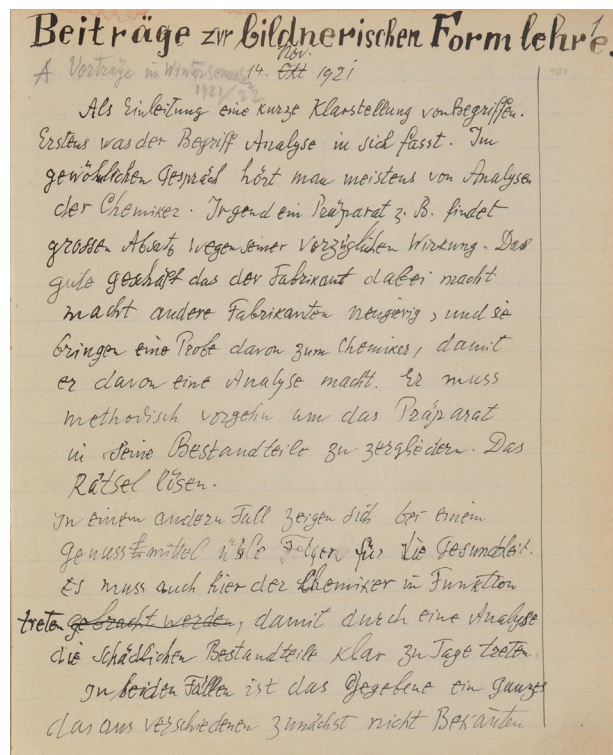 Beiträge zur bildnerischen Formlehre. 1
A Vorträge im Wintersemester
14. Okt Nov. 1921
1921/22
Als Einleitung eine kurze Klarstellung von Begriffen.
Erstens was der Begriff Analyse in sich fasst. Im
gewöhnlichen Gespräch hört man meistens von Analysen
der Chemiker. Irgend ein Präparat z. B. findet
grossen Absatz wegen seiner vorzüglichen Wirkung. Das
gute geschäft das der Fabrikant dabei macht
macht andere Fabrikanten neugierig, und sie
bringen eine Probe davon zum Chemiker, damit
er davon eine Analyse macht. Er muss
methodisch vorgehn um das Präparat
in seine Bestandteile zu zergliedern. Das
Rätsel lösen.
In einem andern Fall zeigen sich bei einem
genussmittel üble Folgen für die Gesundheit.
Es muss auch hier der Chemiker in Funktion
treten gebracht werden, damit durch eine Analyse
die schädlichen Bestandteile klar zu Tage treten.
In beiden Fällen ist das Gegebene ein ganzes
das aus verschiedenen zunächst nicht Bekannten